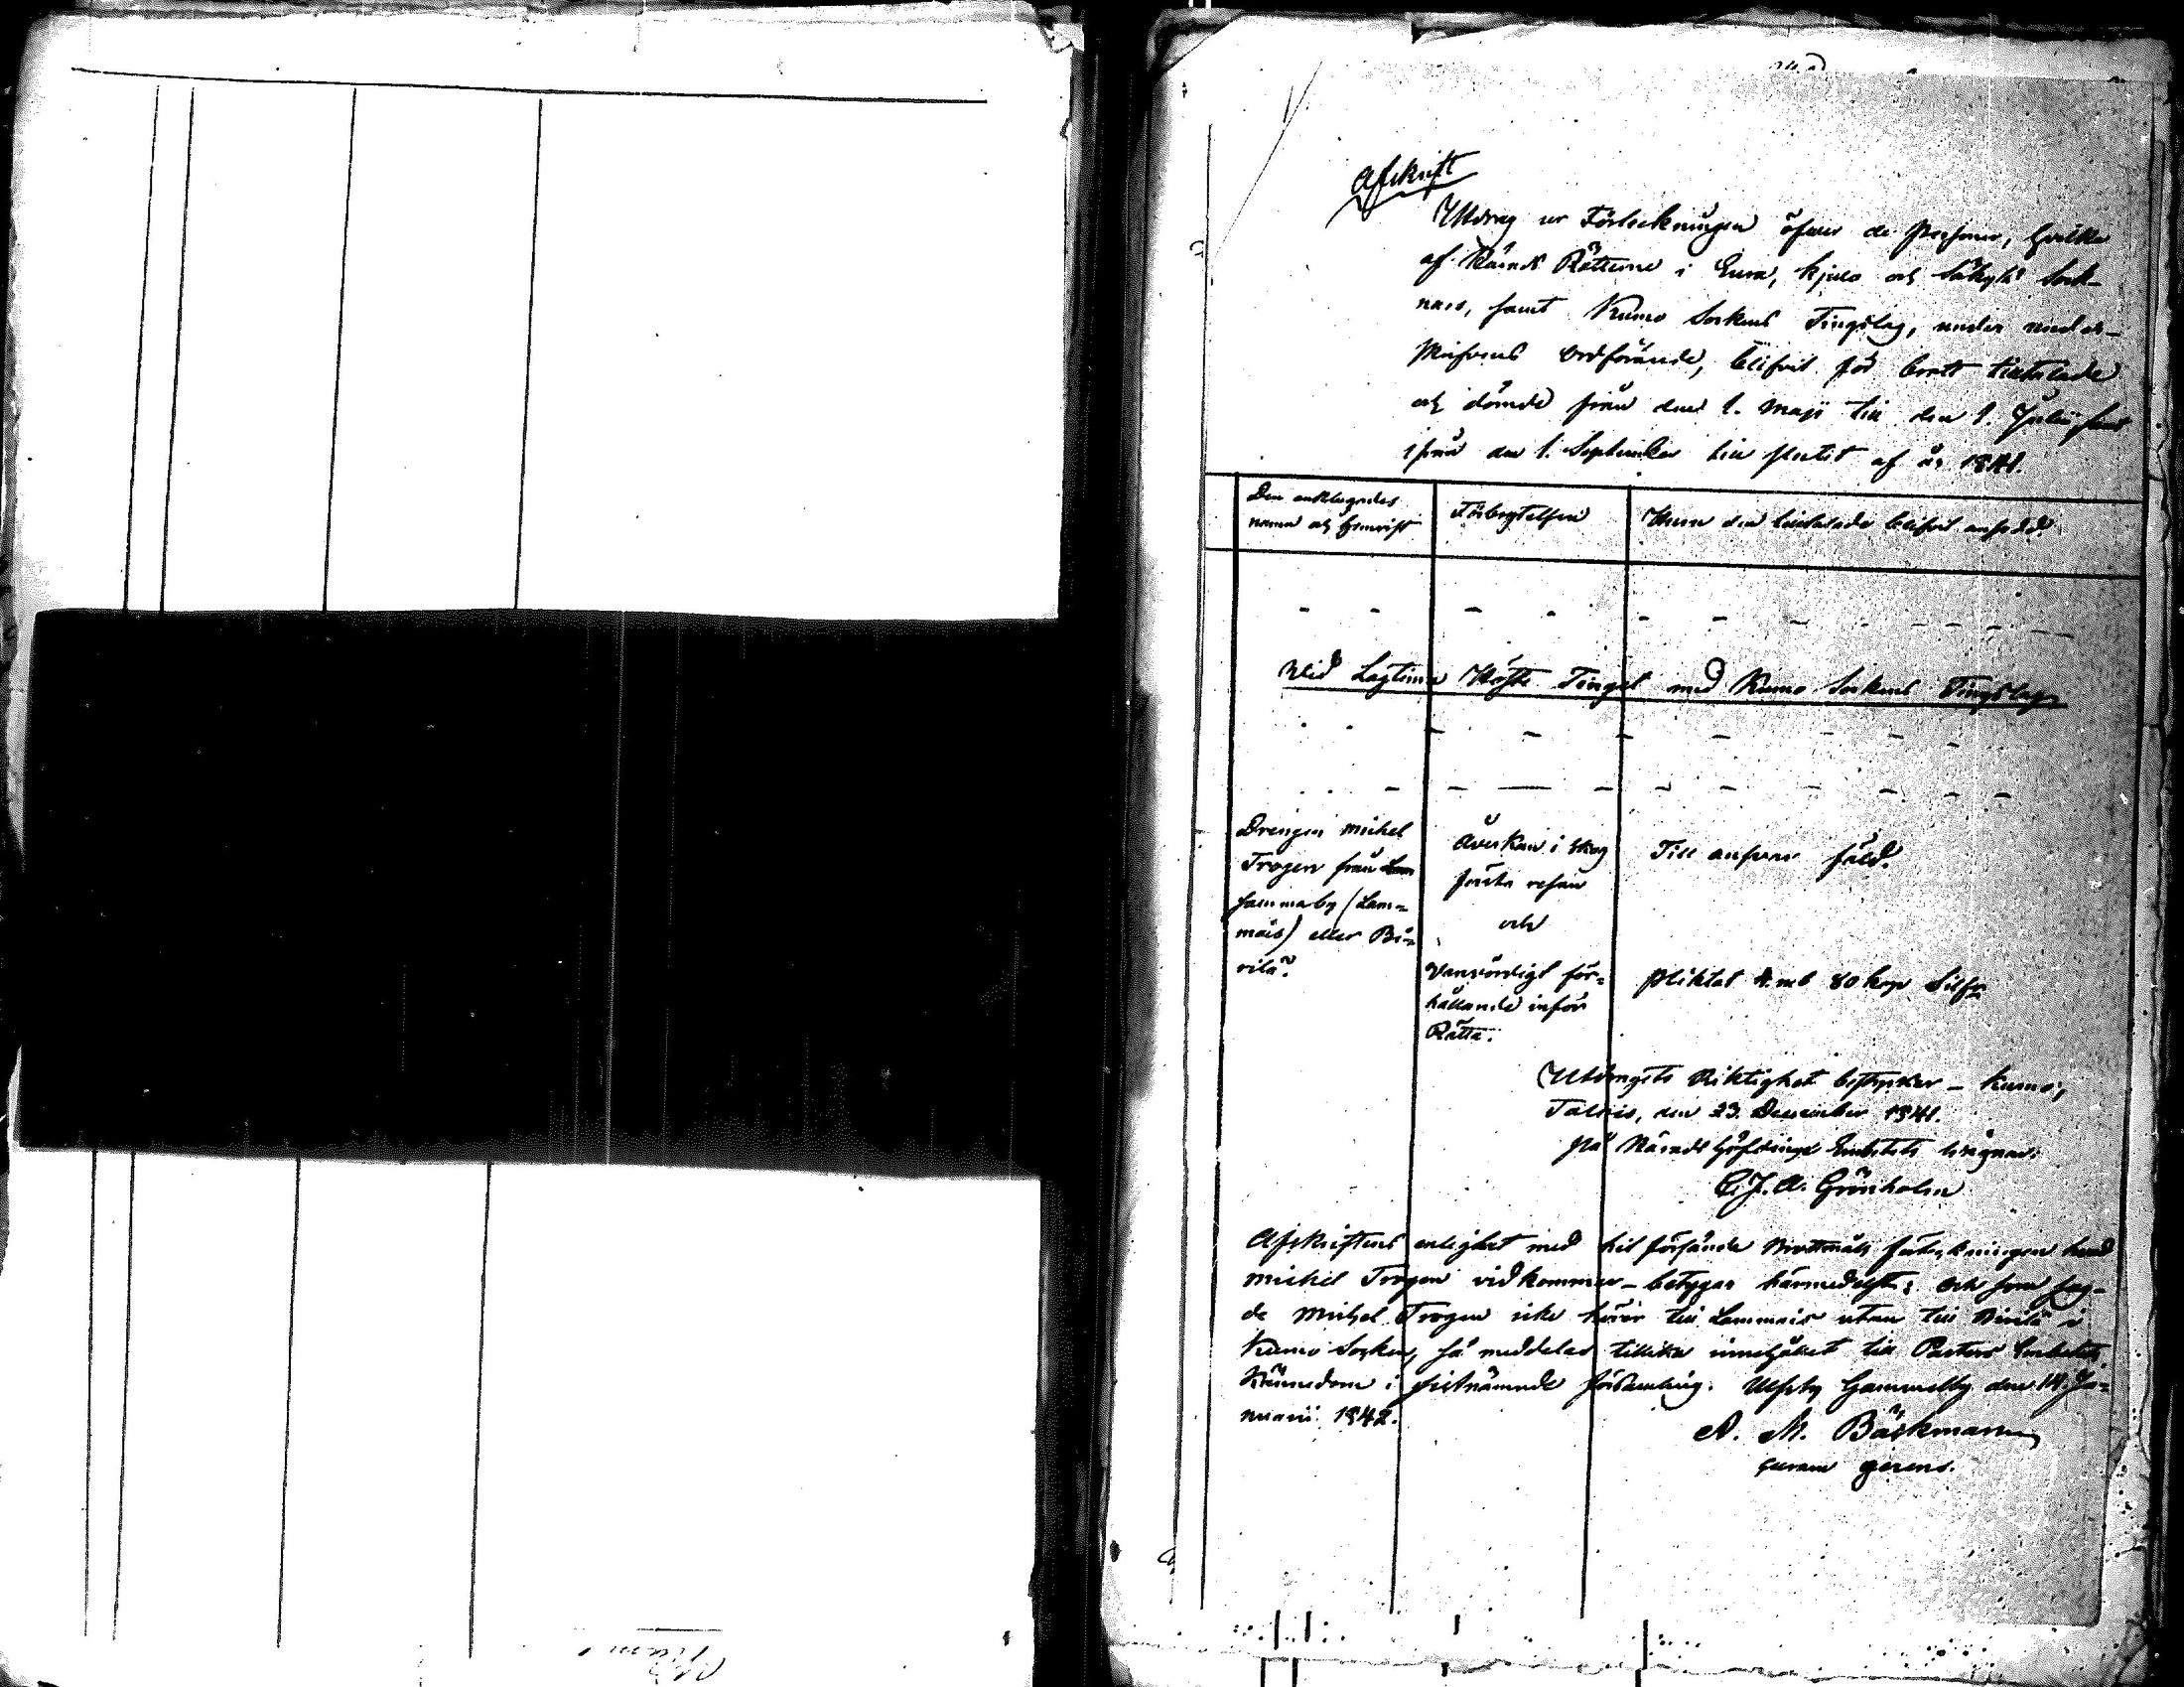 Afskrift
Utdrag ur Förteckningen öfwer de personer, hvilka
af Härads Rätterne i Eura, Kjulo och Säkylä Sock-
nars, samt Kumo Sockens Tingslag, under
Ordförande, blifvit för brott tilltalade
och dömde från den 1. Maji till den 1. Julii samt
ifrån den 1. September till slutet af år 1841.
Den anklagades
namn och hemvist
Förbrytelsen
Huru den tilltalade blifvit ansedd.
Wid Lagtima Höste Tinget med Kumo Sockens Tingslag
Drengen Michel
Trogen från
sammaby (Lam-
mais) eller
Åverkan i skog
första resan
och
Vanvördigt för-
hållande inför
Rätta.
Till ansvar fäld.
Pliktat 4. rub 80 kop Silfr
Utdragets Riktighet bestyrker - Kumo,
den 23. December 1841.
På Härads Höfdinge Embetets vägnar:
C. J. A. Grönholm
Afskriftens enlighet med hit försände Brottmåls förteckningen hvad
Michel Trogen vidkommer - betygar härmedelst; och som sag-
de Michel Trogen icke hörer till Lammais utan till i
Kumo Socken, så meddelas tillika innehållet till Pastors Embetets
Kännedom i sistnämnde församling. Ulfsby Gammelby den 14. Ja-
nuarii 1842.
A. M. Bäckman
curam gerens.